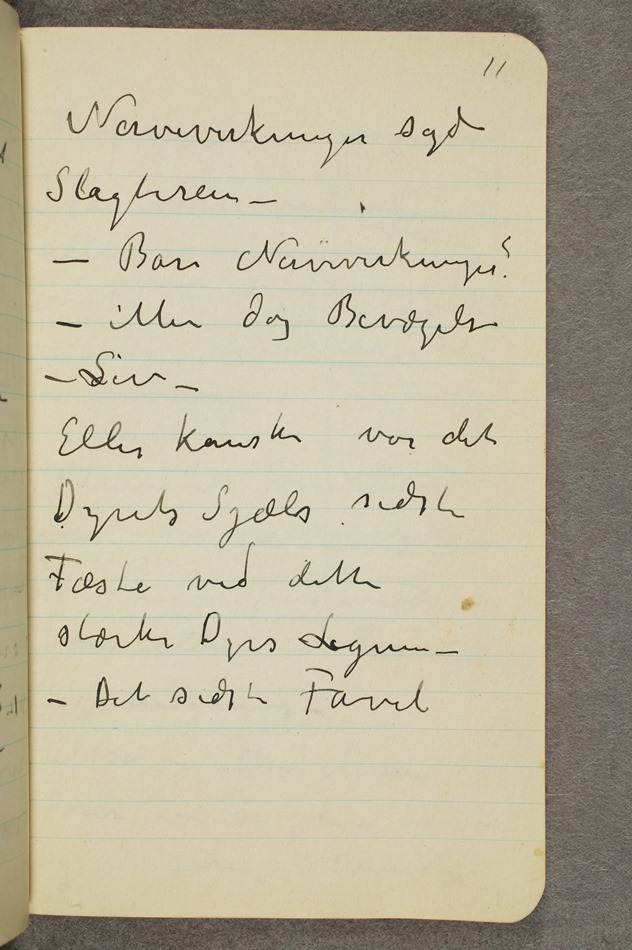 11
Nervevirkninger sagde
Slagteren –
– Bare Nervevirkninger?
– ikke dog Bevægelse
– Liv –
Eller kanske var det
Dyrets Sjæls sidste
Fæste ved dette
stærke Dyrs Legeme –
– Det sidste Farvel